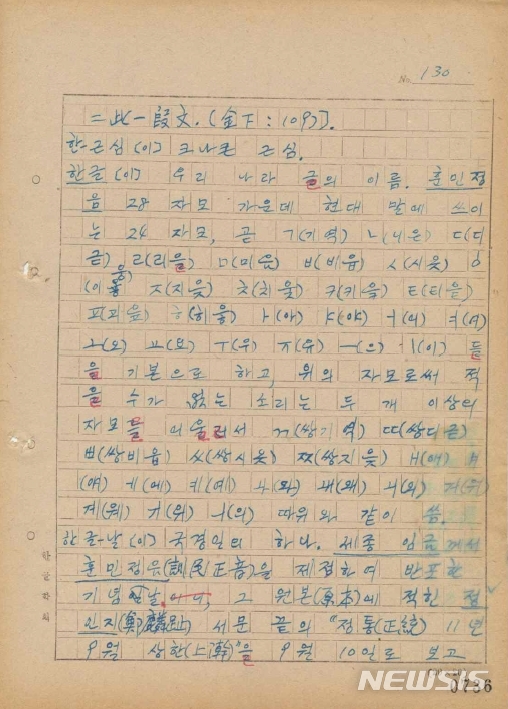 No. 130
= 此一段文. (金下: 109?].
한-근심 (이) 크나큰 근심.
한글 (이) 우리 나라 글의 이름. 훈민정
음 28 자모 가운데 현대 말에 쓰이
는 24 자모, 곧 ㄱ(기역) ㄴ(니은) ㄷ(디
귿) ㄹ(리을) ㅁ(미음) ㅂ(비읍) ㅅ(시옷) ㅇ
(이응) ㅈ(지읒) ㅊ(치읓) ㅋ(키읔) ㅌ(티읕)
ㅍ(피읖) ㅎ(히읗) ㅏ(아) ㅑ(야) ㅓ(어) ㅕ(여)
ㅗ(오) ㅛ(요) ㅜ(우) ㅠ(유) ㅡ(으) ㅣ(이) 들
을 기본으로 하고, 위의 자모로써 적
을 수가 없는 소리는 두 개 이상의
자모를 어울러서 ㄲ(쌍기역) ㄸ(쌍디귿)
ㅃ(쌍비읍) ㅆ(쌍시옷) ㅉ(쌍지읒) ㅐ(애) ㅒ
(얘) ㅔ(에) ㅖ(예) ㅘ(와) ㅙ(왜) ㅚ(외) ㅝ(워)
ㅞ(웨) ㅟ(위) ㅢ(의) 따위와 같이 씀.
한글-날 (이) 국경일의 하나. 세종 임금께서
훈민정음(訓民正音)을 제정하여 반포한
기념날, 그 원본(原本)에 적힌 정
인지(鄭麟趾) 서문 끝의 "정통(正統) 11년
9월 상한(上澣)"을 9월 10일로 보고
한글학회
NEWSIS
0736